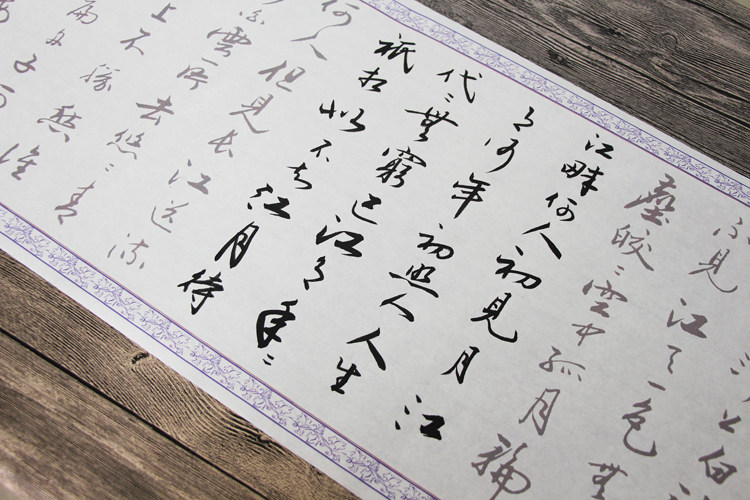 上白
不見江天一色無
塵皎々空中孤月輪
江畔何人初見月江
月何年初照人人生
代々無窮已江月年々
祇相似不知江月待
何人但見長江送流
白雲一片去悠々青
上不勝愁誰
扁舟子何